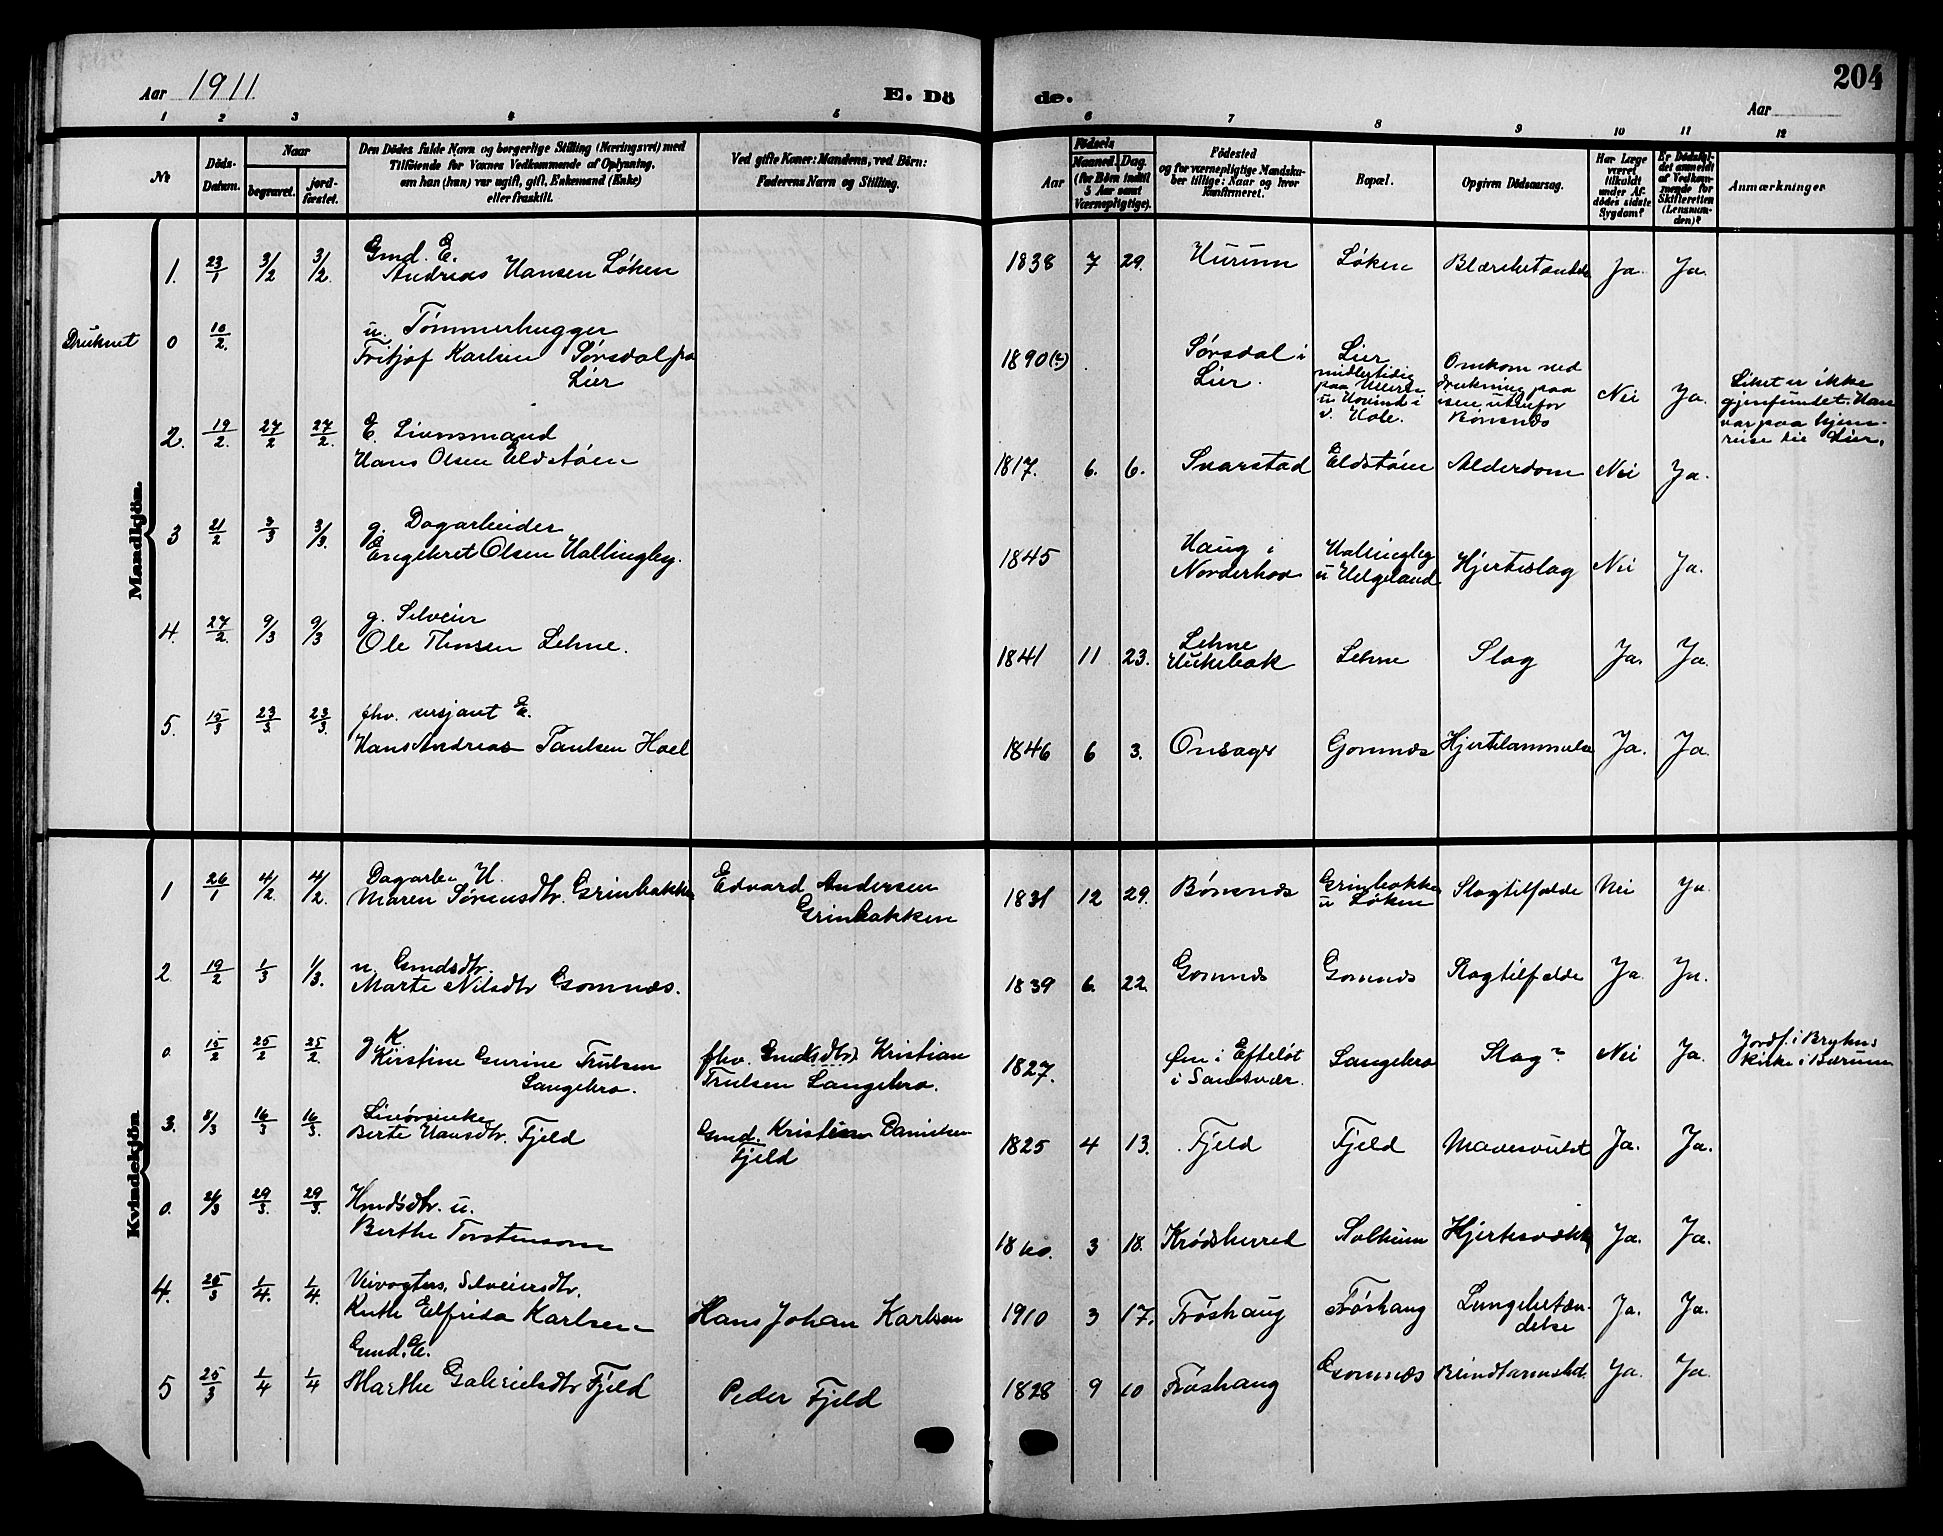 Aar 1911
E. Dö
de.
Aar
204
1 2 3 4 5 6 7 8 9 10 11 12
№
Döds-
Datum.
Naar
begravet.
jord-
fæstet.
Den Dödes fulde Navn og borgerlige Stilling (Næringsvei) med
Tilföiende for Voxnes Vedkommende af Oplysning,
om han (hun) var ugift, gift, Enkemand (Enke)
eller fraskilt.
Ved gifte Koner: Mandens, ved Börn:
Faderens Navn og Stilling.
Födsels
Aar
Maaned. Dag.
(for Börn indtil
5 Aar samt
Værnepligtige).
Födested
og for værnepligtige Mandska-
ber tillige: Naar og hvor
Konfirmeret.
Bopæl.
Opgiven Dödsaarsag.
Har Læge
været
tilkaldt
under Af-
dödes sidste
Sygdom?
Er Dödsfal-
det anmeldt
af Vedkom-
mende for
Skifteretten
(Lensman-
den)?
Anmærkninger
Mandkjön.
1. 23/1 3/2 3/2. Gmd. E.
Andreas Hansen Løken
1838 7 29. Hurum Løken Ja. Ja.
Druknet 0 10/2. u. Tømmerhugger
Fritjof Karlsen Sørsdal fra
Lier
1890(?) Sørsdal i
Lier.
Lier
midlertidig
paa
u Hovind i
v. Hole.
Omkom ved
drukning paa
isen utenfor
Bönsnes
Nei Ja.
Liket er ikke
gjenfundet. Han
var paa hjem-
reise til Lier.
2. 19/2. 27/2 27/2. E. Lensmand
Hans Olsen Eldstøen
1817. 6. 6. Svarstad Eldstøen Alderdom Nei Ja.
3 21/2 3/3 3/3. g. Dagarbeider
Engebret Olsen Hallingby.
1845 Haug i
Norderhov
Hallingby
u Helgeland
Hjerteslag Nei Ja.
4. 27/2. 9/3 9/3 g. Selveier
Ole Thensen Lehne.
1841 11 23. Lehne
Lehne Slag Ja. Ja.
5. 15/3 23/3 23/3. fhv. sersjant E.
Hans Andreas Paulsen Hoel
1846 6 3. Onsager Gomnæs Hjertelammelse Ja. Ja.
Kvindekjön
1 26/1 4/2. 4/2. Dagarb. H.
Maren Sørensdtr. Grinbakken
Edvard Andersen
Grinbakken
1831 12 29. Bönsnæs Grinbakken
u Løken
Slagtilfælde Nei Ja.
2. 19/2 1/3 1/3. u. Gmdsdtr.
Marte Nilsdtr Gomnæs.
1839 6. 22. Gomnæs Gomnæs Slagtilfælde Ja. Ja.
0. 15/2 25/2 25/2. g K
Kirstine Gurine Trulsen
Langebro.
fhv. Kristian
Trulsen Langebro.
1827. i Efteløt
i Sandsvær.
Langebro Slag? Nei Ja.
Jordf. i Bryhns
kirke i Bærum
3. 8/3 16/3 16/3. Livörsenke
Berte Hansdtr. Fjeld
Gmd. Kristian Danielsen
Fjeld
1825 4 13. Fjeld Fjeld Mavesvulst Ja. Ja.
0. 21/3 29/3. 29/3. Hmdsdtr. u.
Berthe Torstensom
1860. 3 18. Krødsherred Solheim Ja. Ja.
4. 25/3 1/4. 1/4. Veivogters, Selveiersdtr.
Ruth Elfrida Karlsen
Hans Johan Karlsen
1910 3 17. Frøshaug Frøshaug Lungebetæn-
delse
Ja. Ja.
5 25/3 1/4 1/4 Gmd. E.
Marthe Gabrielsdtr Fjeld
Peder Fjeld
1828 9 10 Frøshaug Gomnæs Ja. Ja.